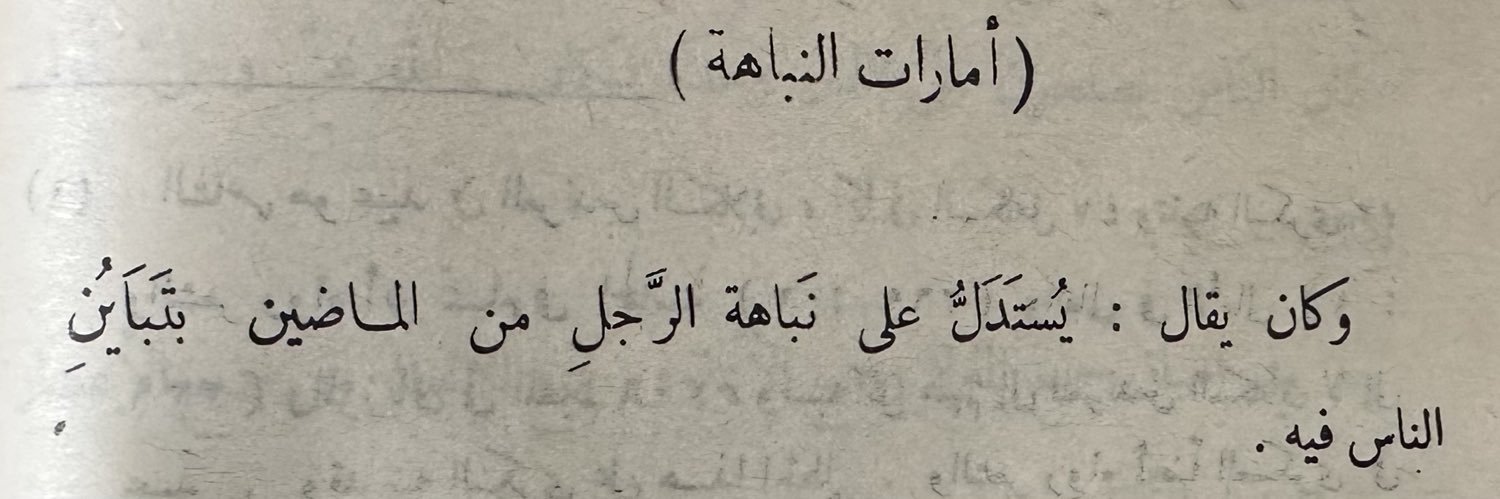 ( أمارات النباهة )
وكان يقال : يُستَدَلُّ على نَباهة الرَّجلِ من الماضين بتَبَايُنِ
الناس فيه .